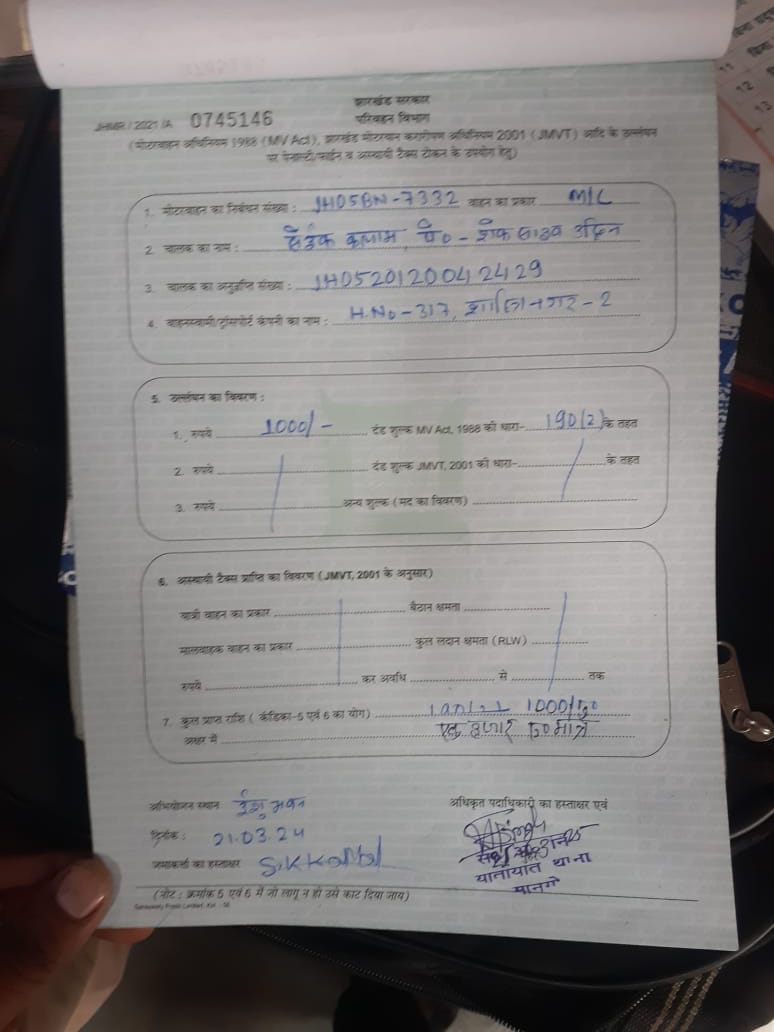 झारखंड सरकार
JHMR / 2021 /A 0745146 परिवहन विभाग
(मोटरवाहन अधिनियम 1988 (MV Act), झारखंड मोटरयान करारोपण अधिनियम 2001 (JMVT) आदि के उल्लंघन
पर पेनाल्टी/फाईन व अस्थायी टैक्स टोकन के उपयोग हेतु)
1. मोटरवाहन का निबंधन संख्या : JH05BN-7332 वाहन का प्रकार M/C
2. चालक का नाम : कलाम
3. चालक का अनुज्ञप्ति संख्या : JH0520120042429
4. वाहनस्वामी/ट्रांसपोर्ट कंपनी का नाम : H.No-317, -2
5. उल्लंघन का विवरण :
1. रुपये 1000/- दंड शुल्क MV Act, 1988 की धारा- 190(2) के तहत
2. रुपये दंड शुल्क JMVT, 2001 की धारा- के तहत
3. रुपये अन्य शुल्क (मद का विवरण)
6. अस्थायी टैक्स प्राप्ति का विवरण (JMVT, 2001 के अनुसार)
यात्री वाहन का प्रकार बैठान क्षमता
मालवाहक वाहन का प्रकार कुल लदान क्षमता (RLW)
रुपये कर अवधि से तक
7. कुल प्राप्त राशि ( कंडिका-5 एवं 6 का योग) 1000/
अक्षर में एक हजार रू० मात्र
अभियोजन स्थान भवन अधिकृत पदाधिकारी का हस्ताक्षर एवं
दिनांक : 21.03.24
जमाकर्त्ता का हस्ताक्षर
यातायात थाना
मानगो
(नोट : क्रमांक 5 एवं 6 में जो लागू न हो उसे काट दिया जाय)
12
13